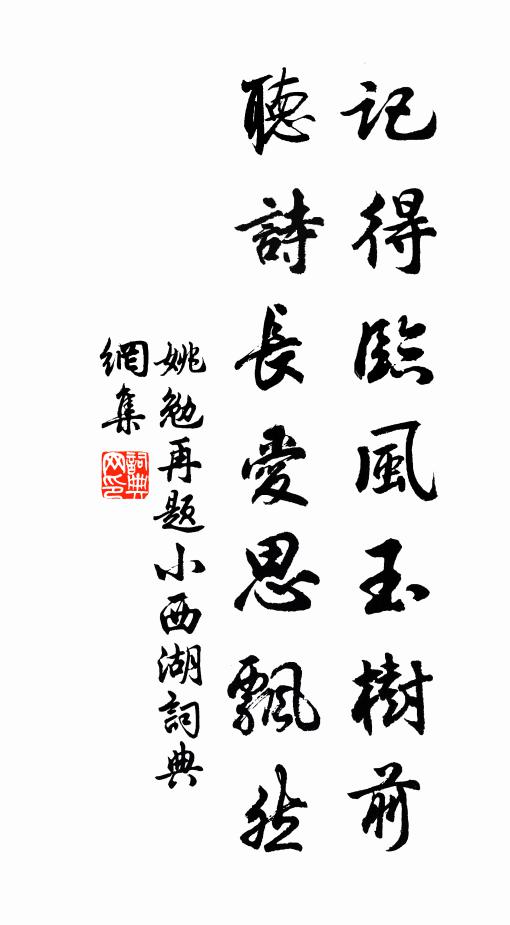 記得臨風玉樹前
聽詩長愛思飄然
姚勉再题小西湖詞典
網集
詞典網印